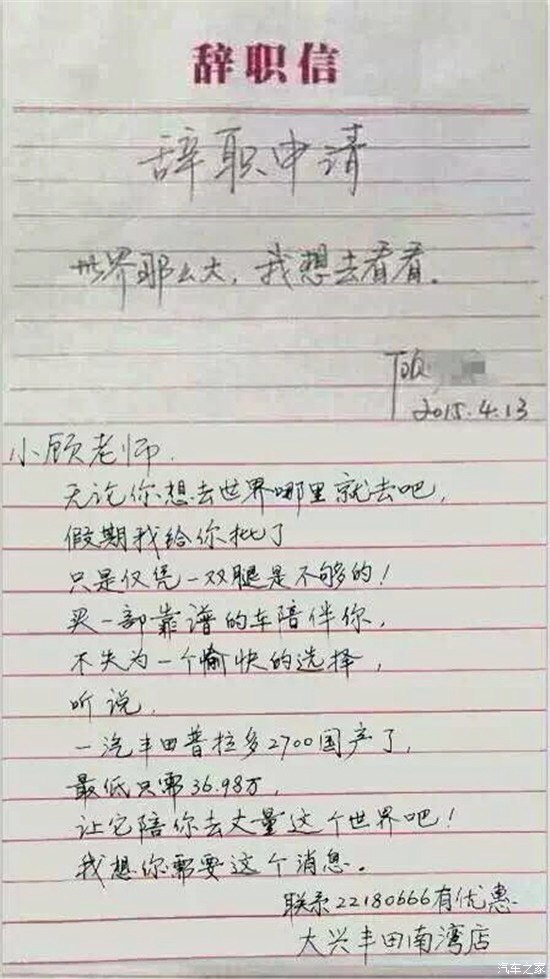 辞职信
辞职申请
世界那么大，我想去看看。
顾
2015.4.13
小顾老师.
无论你想去世界哪里就去吧,
假期我给你批了
只是仅凭一双腿是不够的!
买一部靠谱的车陪伴你,
不失为一个愉快的选择,
听说,
一汽丰田普拉多2700国产了,
最低只需36.98万,
让它陪你去丈量这个世界吧!
我想你需要这个消息。
联系22180666有优惠
大兴丰田南湾店
汽车之家